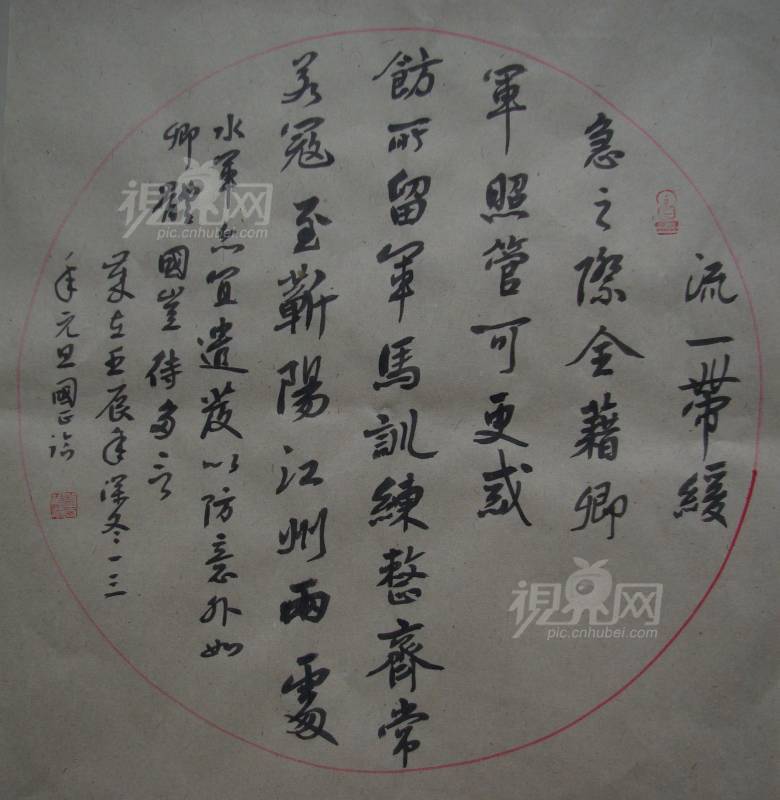 流一帶緩
急之際全藉卿
軍照管可更戒
飭所留軍馬訓練整齊常
若寇至蘄陽江州兩處
水軍亦宜遣發以防意外如
卿體國豈待多言
歲在壬辰年深冬一三
年元旦國正
視界网
pic.cnhubei.com
視界网
pic.cnhubei.com